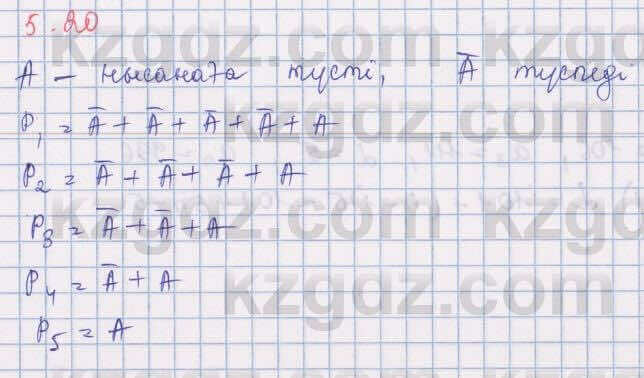 5.20
A – нысанаға түсті, Ā түспеді
P₁ = Ā + Ā + Ā + Ā + A
P₂ = Ā + Ā + Ā + A
P₃ = Ā + Ā + A
P₄ = Ā + A
P₅ = A
kzgdz.com
kzgdz.com
kzgdz.com
kzgdz.com